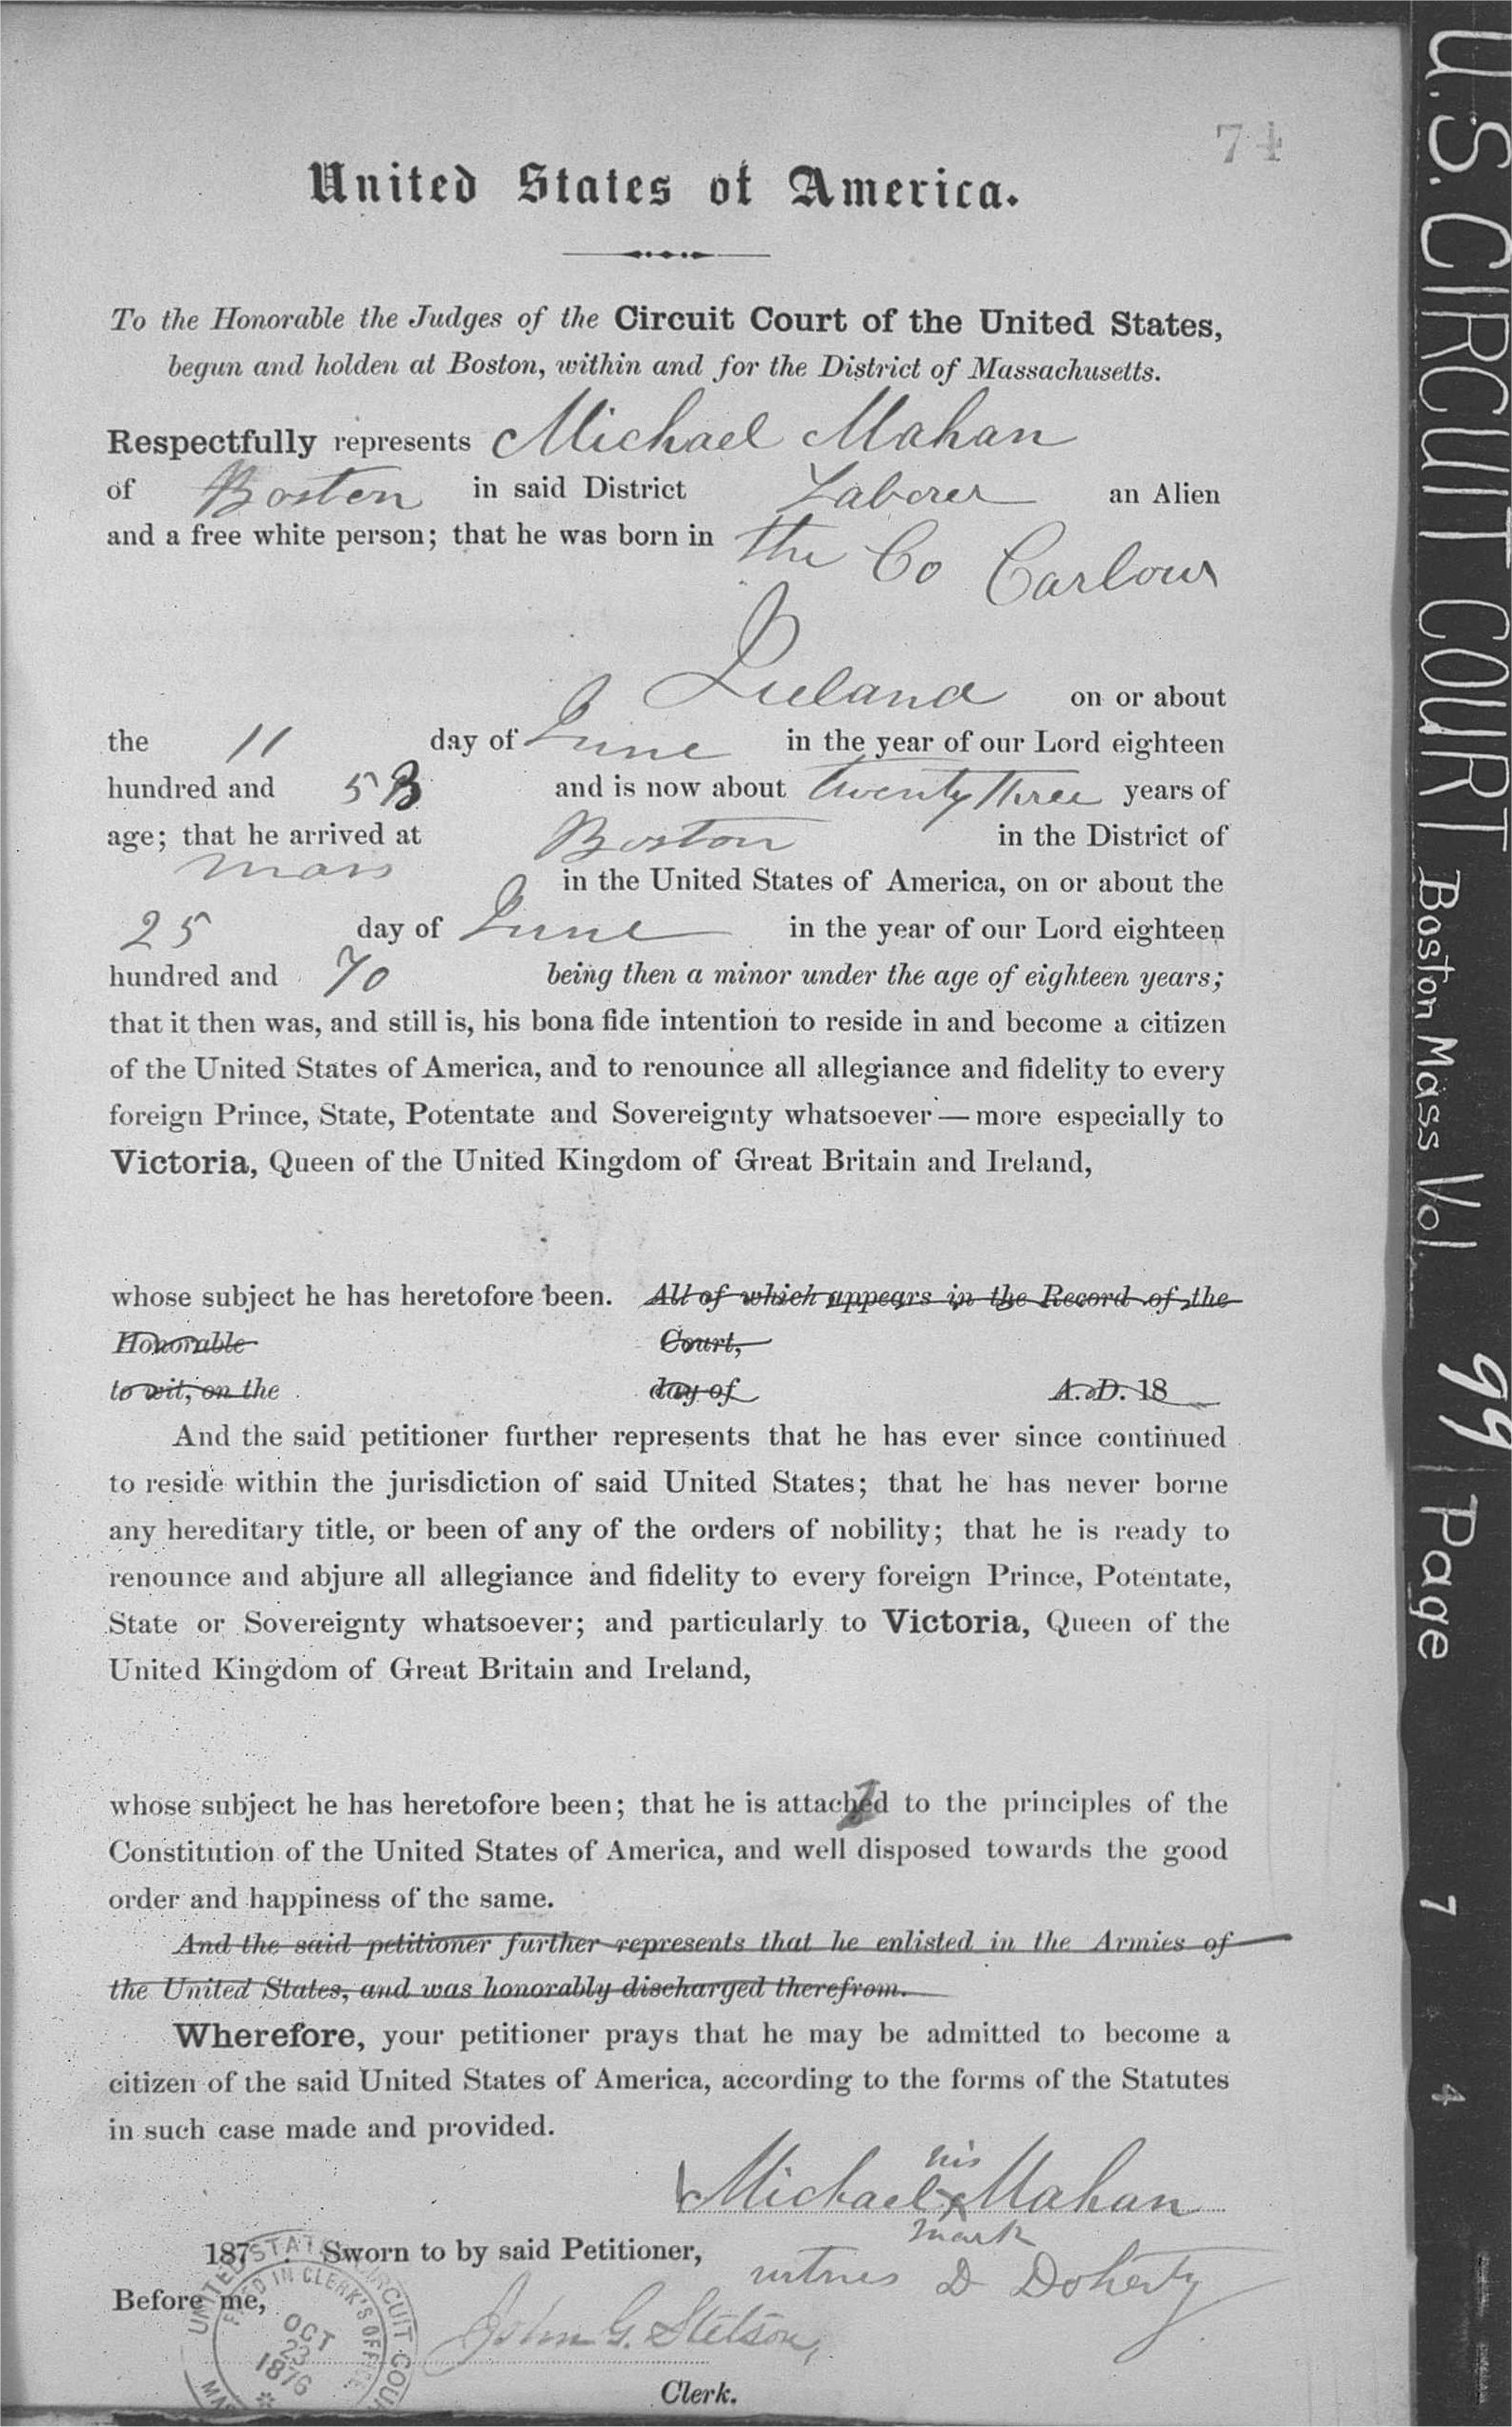 74
United States of America.
To the Honorable the Judges of the Circuit Court of the United States,
begun and holden at Boston, within and for the District of Massachusetts.
Respectfully represents Michael Mahan
of Boston in said District Laborer an Alien
and a free white person; that he was born in the Co Carlow
Ireland on or about
the 11 day of June in the year of our Lord eighteen
hundred and 53 and is now about twenty three years of
age; that he arrived at Boston in the District of
Mass in the United States of America, on or about the
25 day of June in the year of our Lord eighteen
hundred and 70 being then a minor under the age of eighteen years;
that it then was, and still is, his bona fide intention to reside in and become a citizen
of the United States of America, and to renounce all allegiance and fidelity to every
foreign Prince, State, Potentate and Sovereignty whatsoever — more especially to
Victoria, Queen of the United Kingdom of Great Britain and Ireland,
whose subject he has heretofore been. All of which appears in the Record of the
Honorable Court,
to wit, on the day of A. D. 18
And the said petitioner further represents that he has ever since continued
to reside within the jurisdiction of said United States; that he has never borne
any hereditary title, or been of any of the orders of nobility; that he is ready to
renounce and abjure all allegiance and fidelity to every foreign Prince, Potentate,
State or Sovereignty whatsoever; and particularly to Victoria, Queen of the
United Kingdom of Great Britain and Ireland,
whose subject he has heretofore been; that he is attached to the principles of the
Constitution of the United States of America, and well disposed towards the good
order and happiness of the same.
And the said petitioner further represents that he enlisted in the Armies of
the United States, and was honorably discharged therefrom.
Wherefore, your petitioner prays that he may be admitted to become a
citizen of the said United States of America, according to the forms of the Statutes
in such case made and provided.
his
Michael x Mahan
mark
187 . Sworn to by said Petitioner,
witness D Doherty
Before me,
John G. Stetson,
Clerk.
UNITED STATES CIRCUIT COUR
FILED IN CLERK'S OFFICE
OCT
23
1876
MAS
U.S. CIRCUIT COURT Boston Mass Vol. 99 Page 7 4